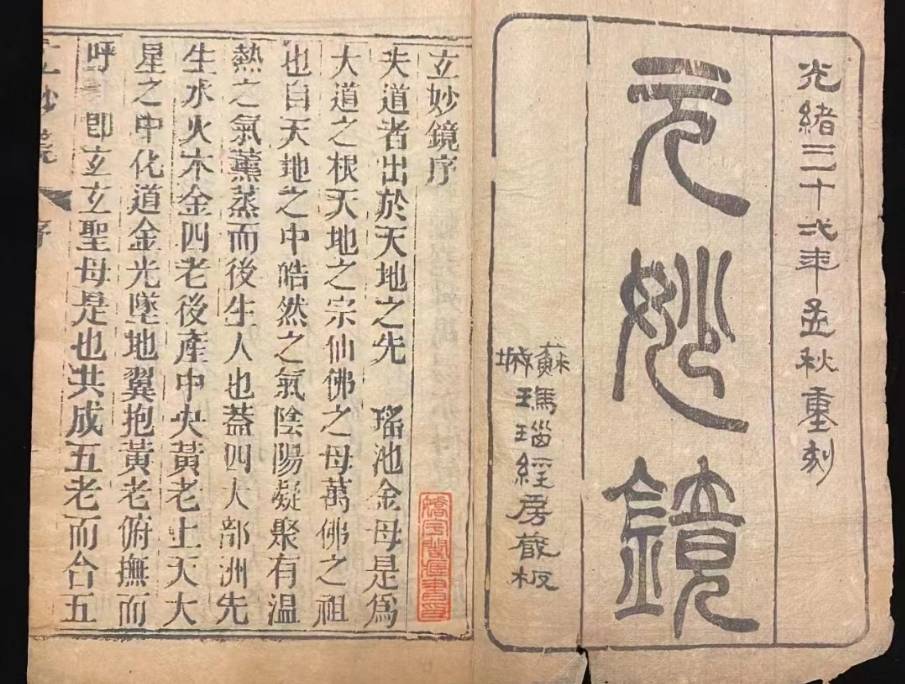 光緒三十弍年孟秋重刻
元妙鏡
蘇城
瑪瑙經房藏板
玄妙鏡序
夫道者出於天地之先　瑤池金母是爲
大道之根天地之宗仙佛之母萬佛之祖
也自天地之中皓然之氣陰陽凝聚有溫
熱之氣薰蒸而後生人也蓋四大部洲先
生水火木金四老後產中央黃老上天大
星之中化道金光墜地翼抱黃老俯撫而
呼卽玄玄聖母是也共成五老而合五
玄妙鏡　序